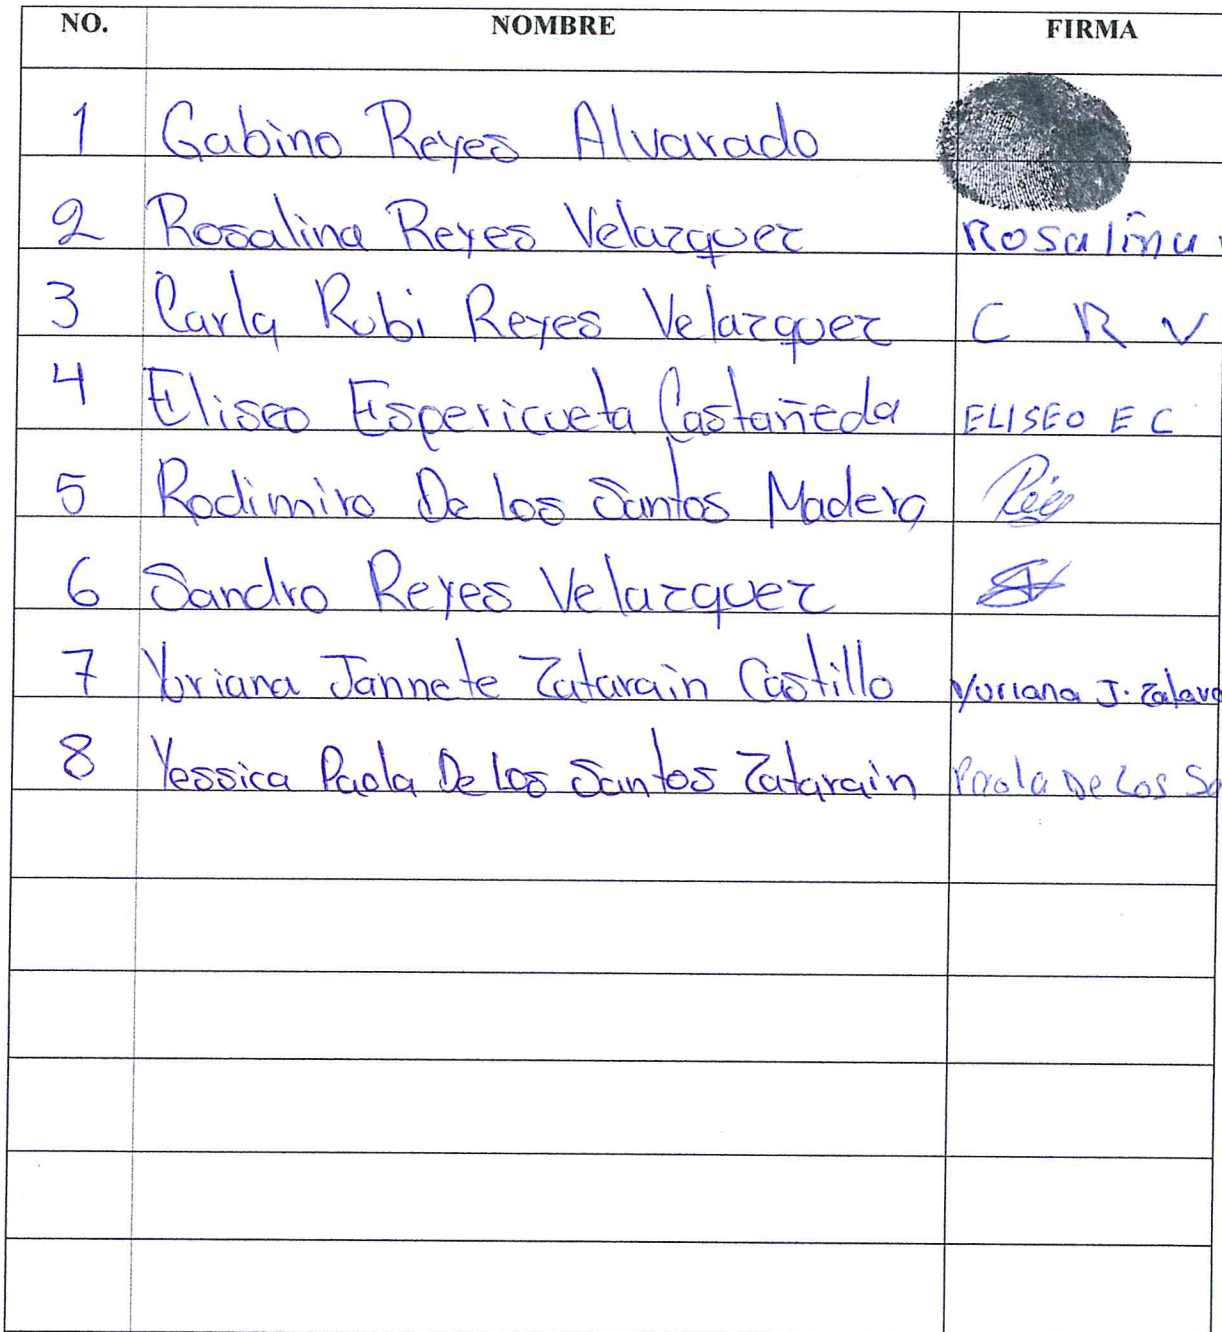 NO. NOMBRE FIRMA
1 Gabino Reyes Alvarado
2 Rosalina Reyes Velazquez Rosalina
3 Carla Rubi Reyes Velazquez C R V
4 Eliseo Espericueta Castañeda ELISEO E C
5 Rodimiro De los Santos Madera
6 Sandro Reyes Velazquez
7 Yuriana Jannete Zatarain Castillo Yuriana J. Zatara
8 Yessica Paola De Los Santos Zatarain Paola De Los Sa